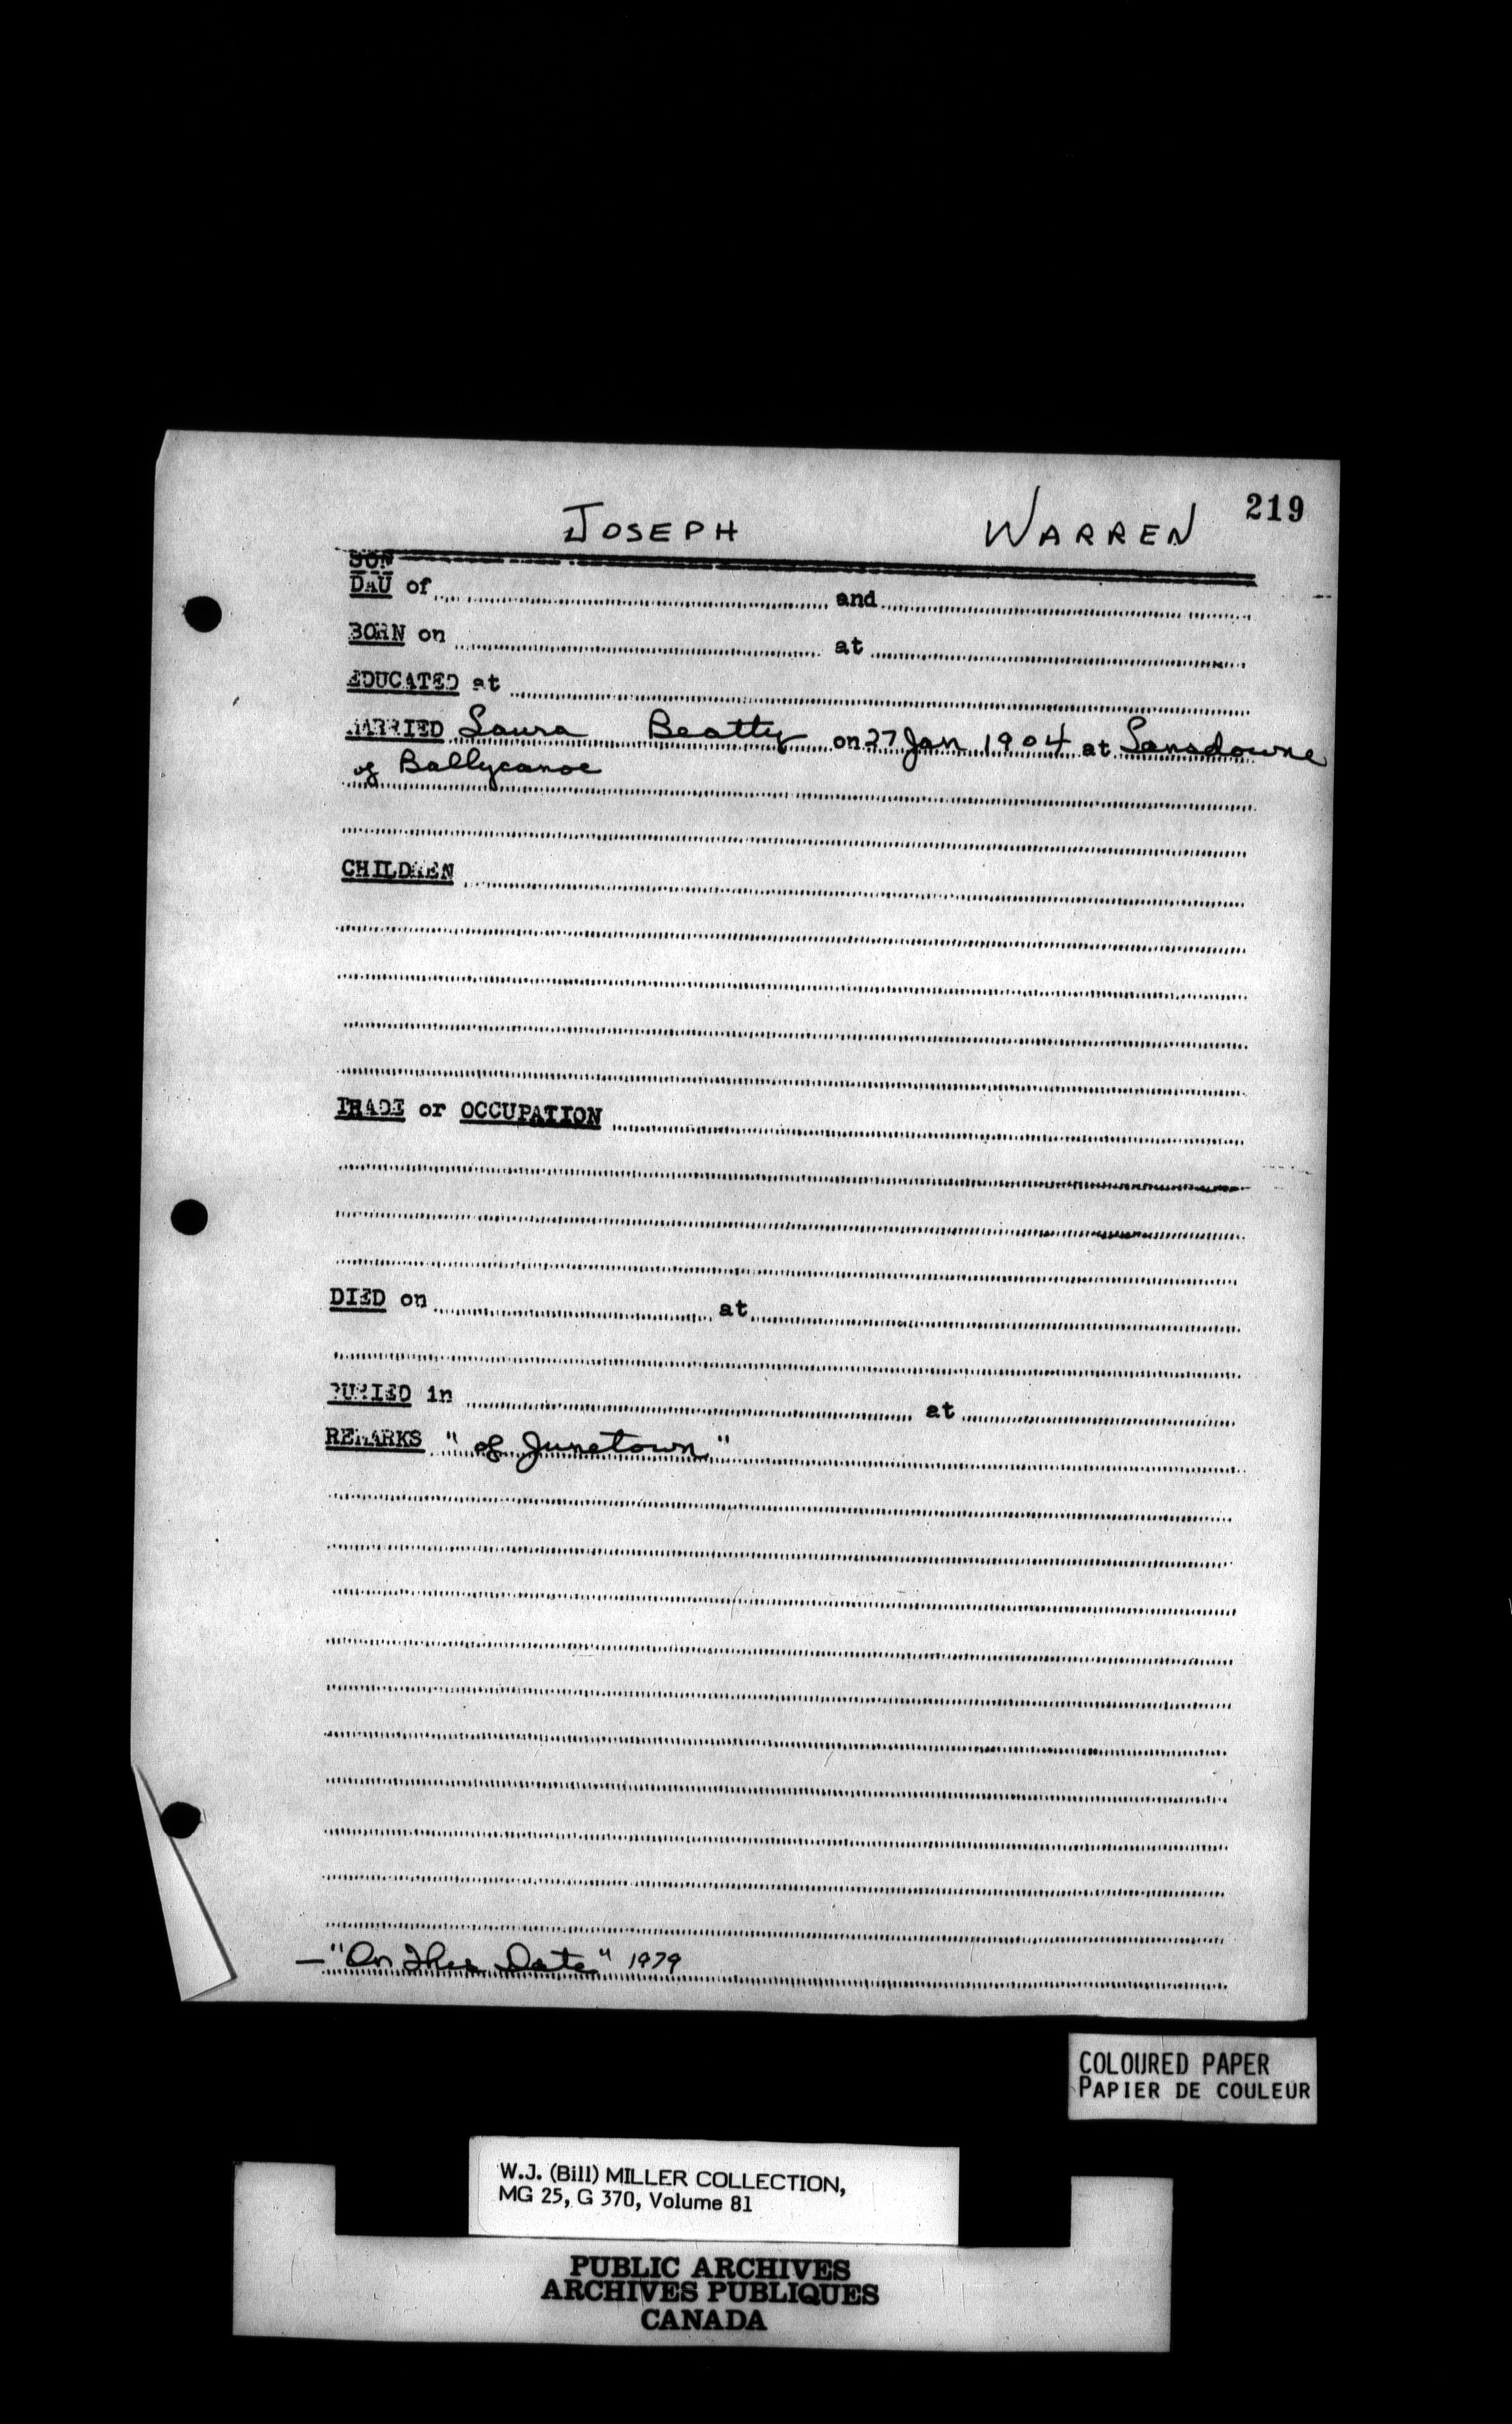 219
JOSEPH WARREN
SON
DAU of and
BORN on at
EDUCATED at
MARRIED Laura Beatty on 27 Jan 1904 at Lansdowne
of Ballycanoe
CHILDREN
TRADE or OCCUPATION
DIED on at
BURIED in at
REMARKS "of Junetown"
— "On This Date" 1979
COLOURED PAPER
PAPIER DE COULEUR
W.J. (Bill) MILLER COLLECTION,
MG 25, G 370, Volume 81
PUBLIC ARCHIVES
ARCHIVES PUBLIQUES
CANADA